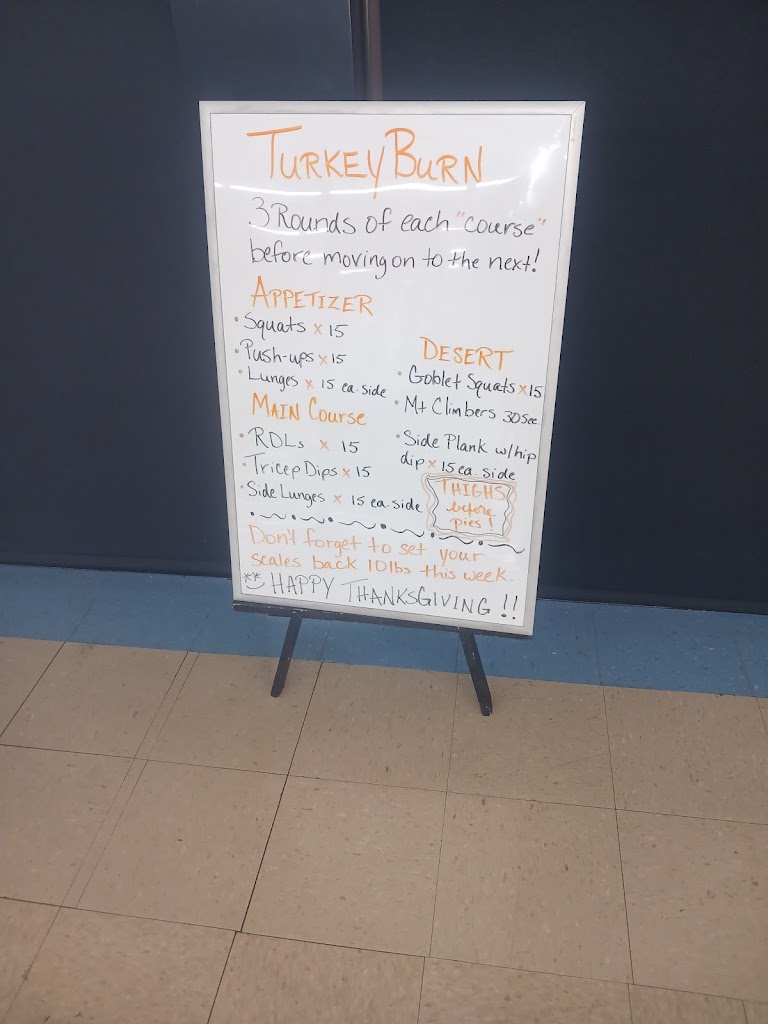 TURKEY BURN
3 Rounds of each "course"
before moving on to the next!
APPETIZER
• Squats x 15
• Push-ups x 15
• Lunges x 15 ea. side
MAIN Course
• RDLs x 15
• Tricep Dips x 15
• Side Lunges x 15 ea. side
DESERT
• Goblet Squats x 15
• Mt Climbers 30 Sec.
• Side Plank w/hip
dip x 15 ea. side
THIGHS
before
pies!
Don't forget to set your
scales back 10lbs this week.
HAPPY THANKSGIVING!!